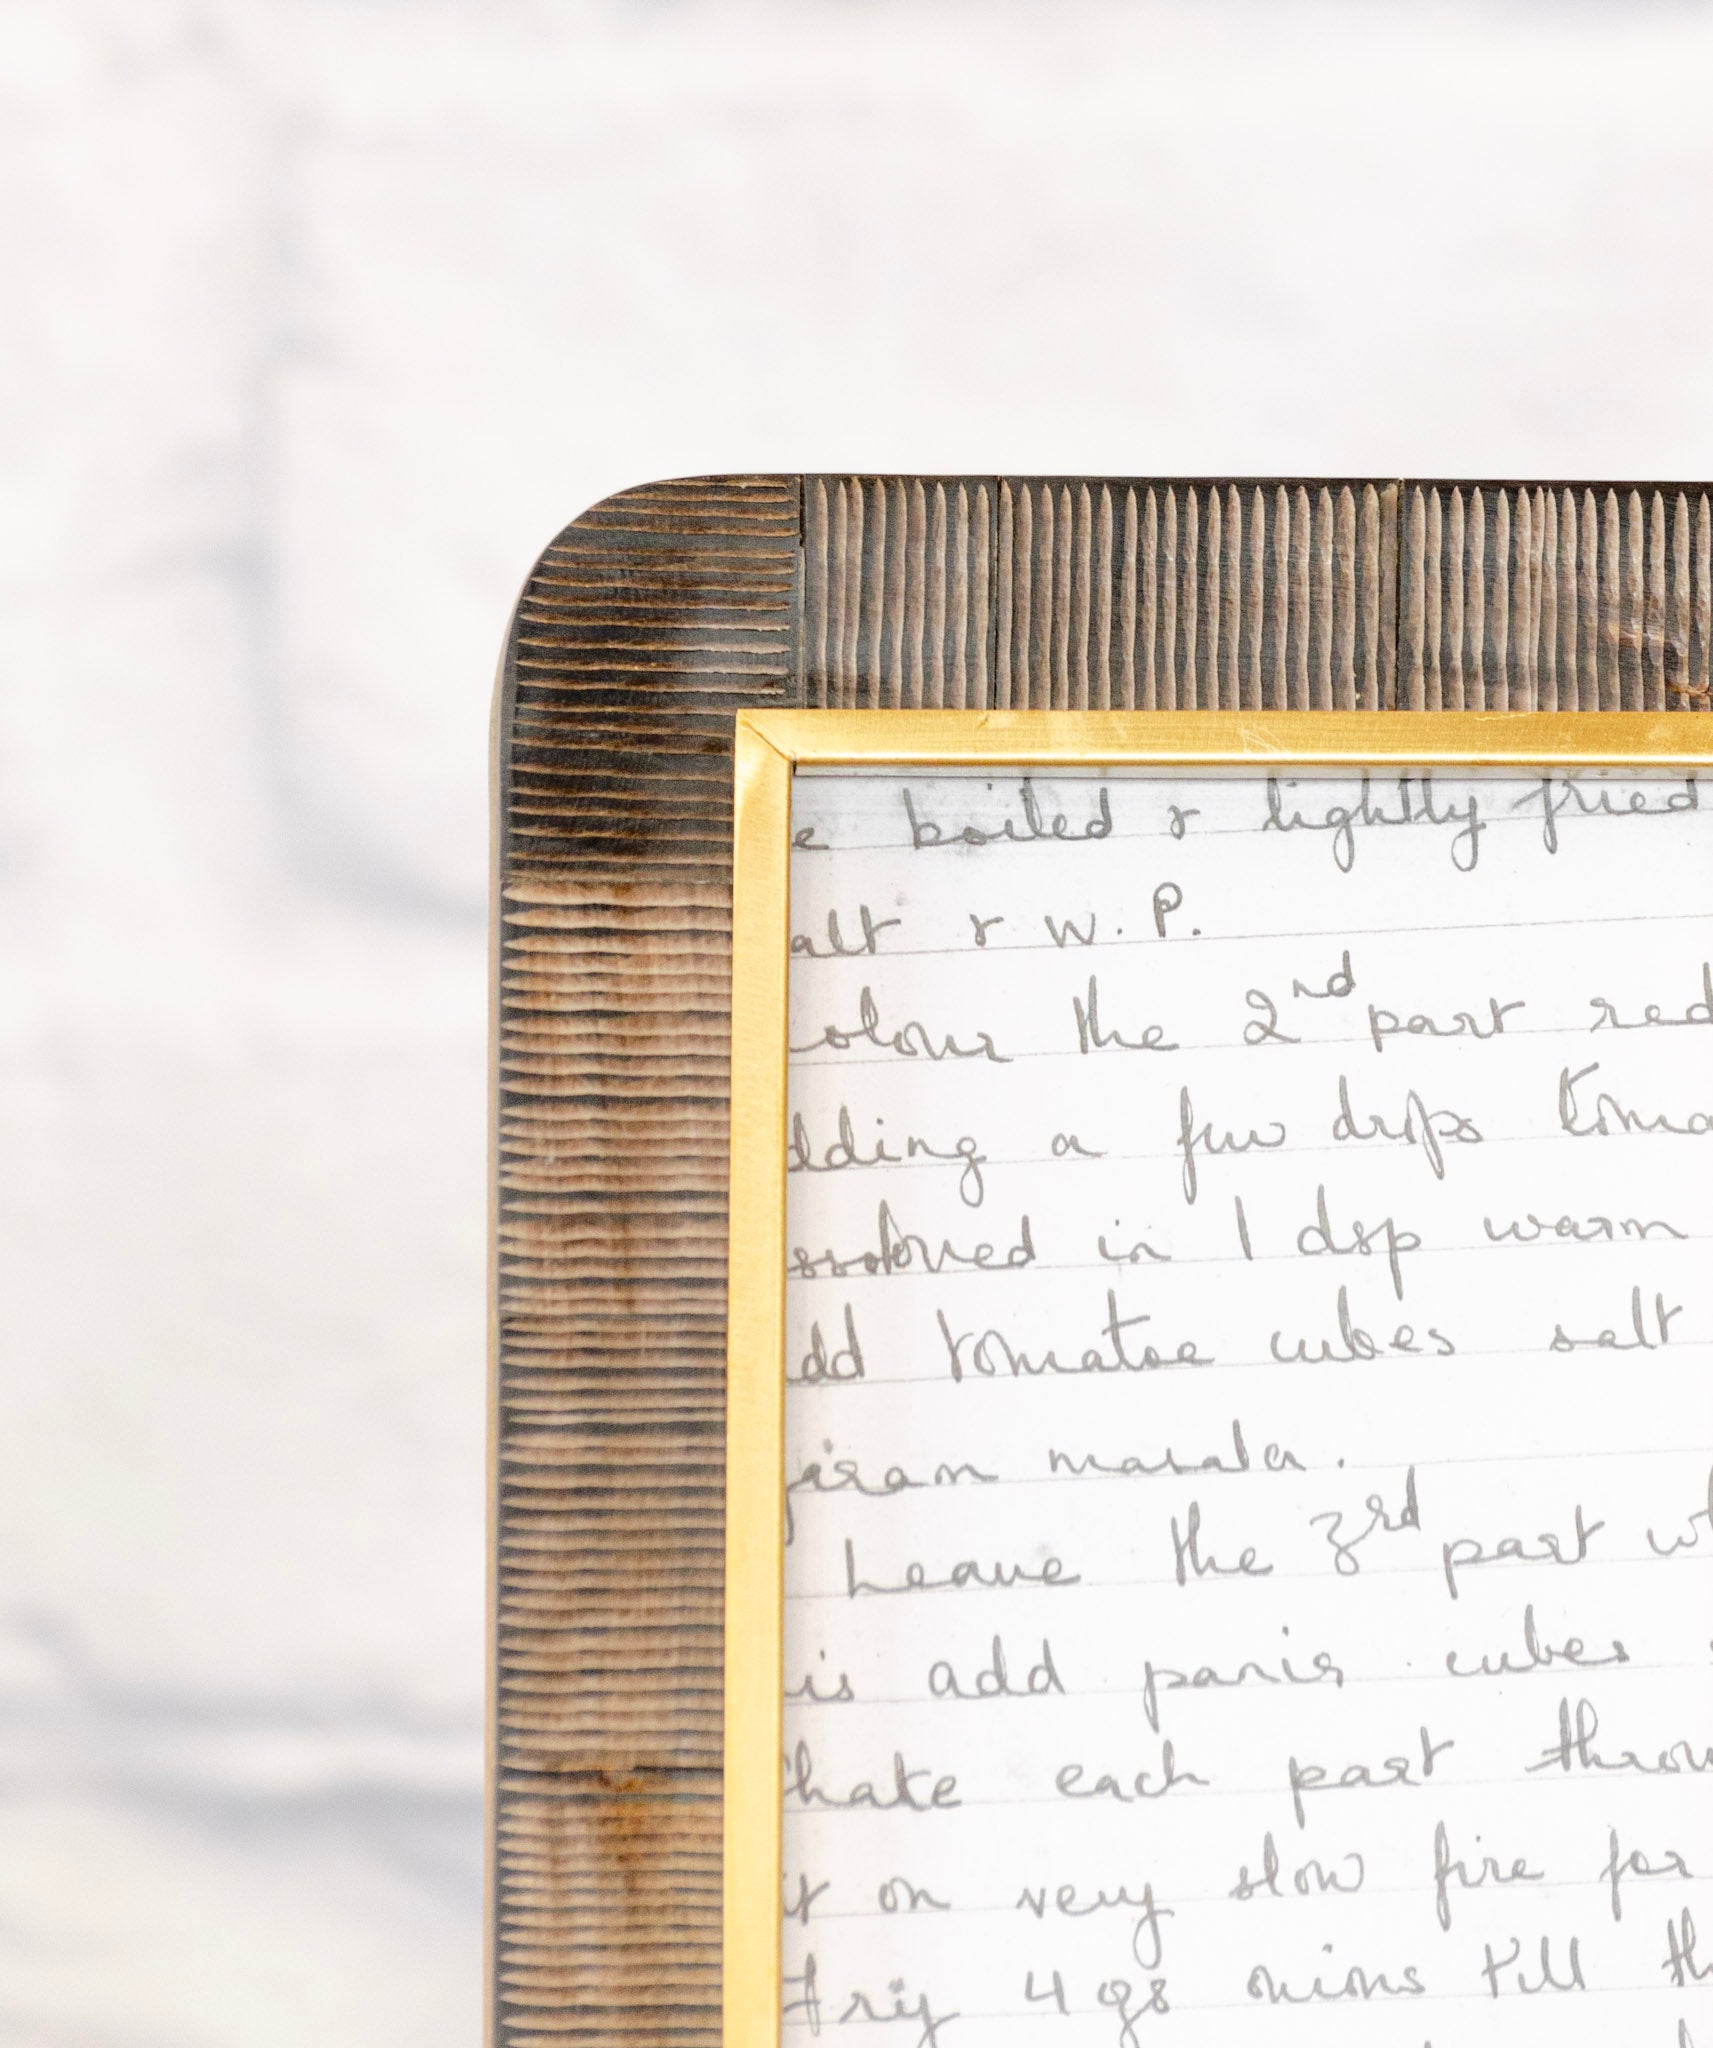 e boiled & lightly fried
alt & W.P.
olour the 2nd part red
dding a few drips toma
ssolved in 1 dsp warm
dd tomatoe cubes salt
masala.
Leave the 3rd part wh
is add cubes
hake each part throu
it on very slow fire for
Fry 4 mins till th